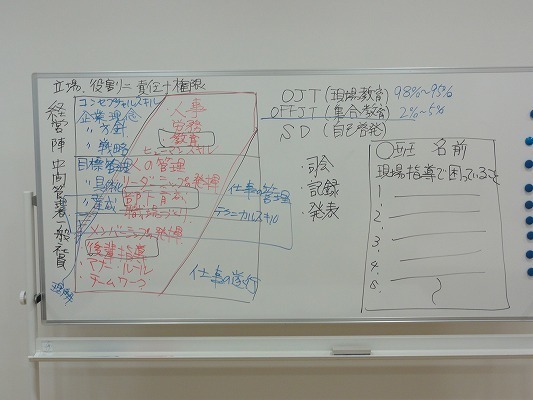 立場、役割＝責任＋権限
経営陣
中間管理者
一般社員
コンセプチャルスキル
企業理念
〃 方針
〃 戦略
目標管理
〃 具体化
〃 達成
・人事
労務
教育
ヒューマンスキル
人の管理
リーダーシップの発揮
部下育成
職場づくり
メンバーシップの発揮
後輩指導
マナー・ルール
チームワーク
仕事の管理
テクニカルスキル
仕事の遂行
OJT(現場教育) 98%~95%
OFFJT(集合教育) 2%~5%
SD(自己啓発)
司会
記録
・発表
〇班 名前
現場指導で困っていること
1.
2.
3.
4.
5.